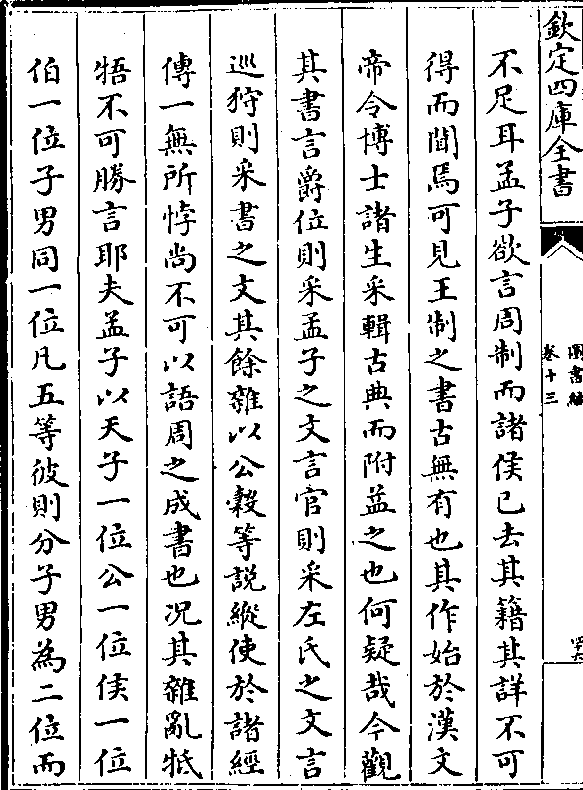 欽定四庫全書
圖書編
卷十三
不足耳孟子欲言周制而諸侯已去其籍其詳不可
得而聞焉可見王制之書古無有也其作始於漢文
帝令博士諸生采輯古典而附益之也何疑哉今觀
其書言爵位則采孟子之文言官則采左氏之文言
巡狩則采書之文其餘雜以公穀等説縱使於諸經
傳一無所悖尚不可以語周之成書也况其雜亂牴
牾不可勝言耶夫孟子以天子一位公一位侯一位
伯一位子男同一位凡五等彼則分子男為二位而